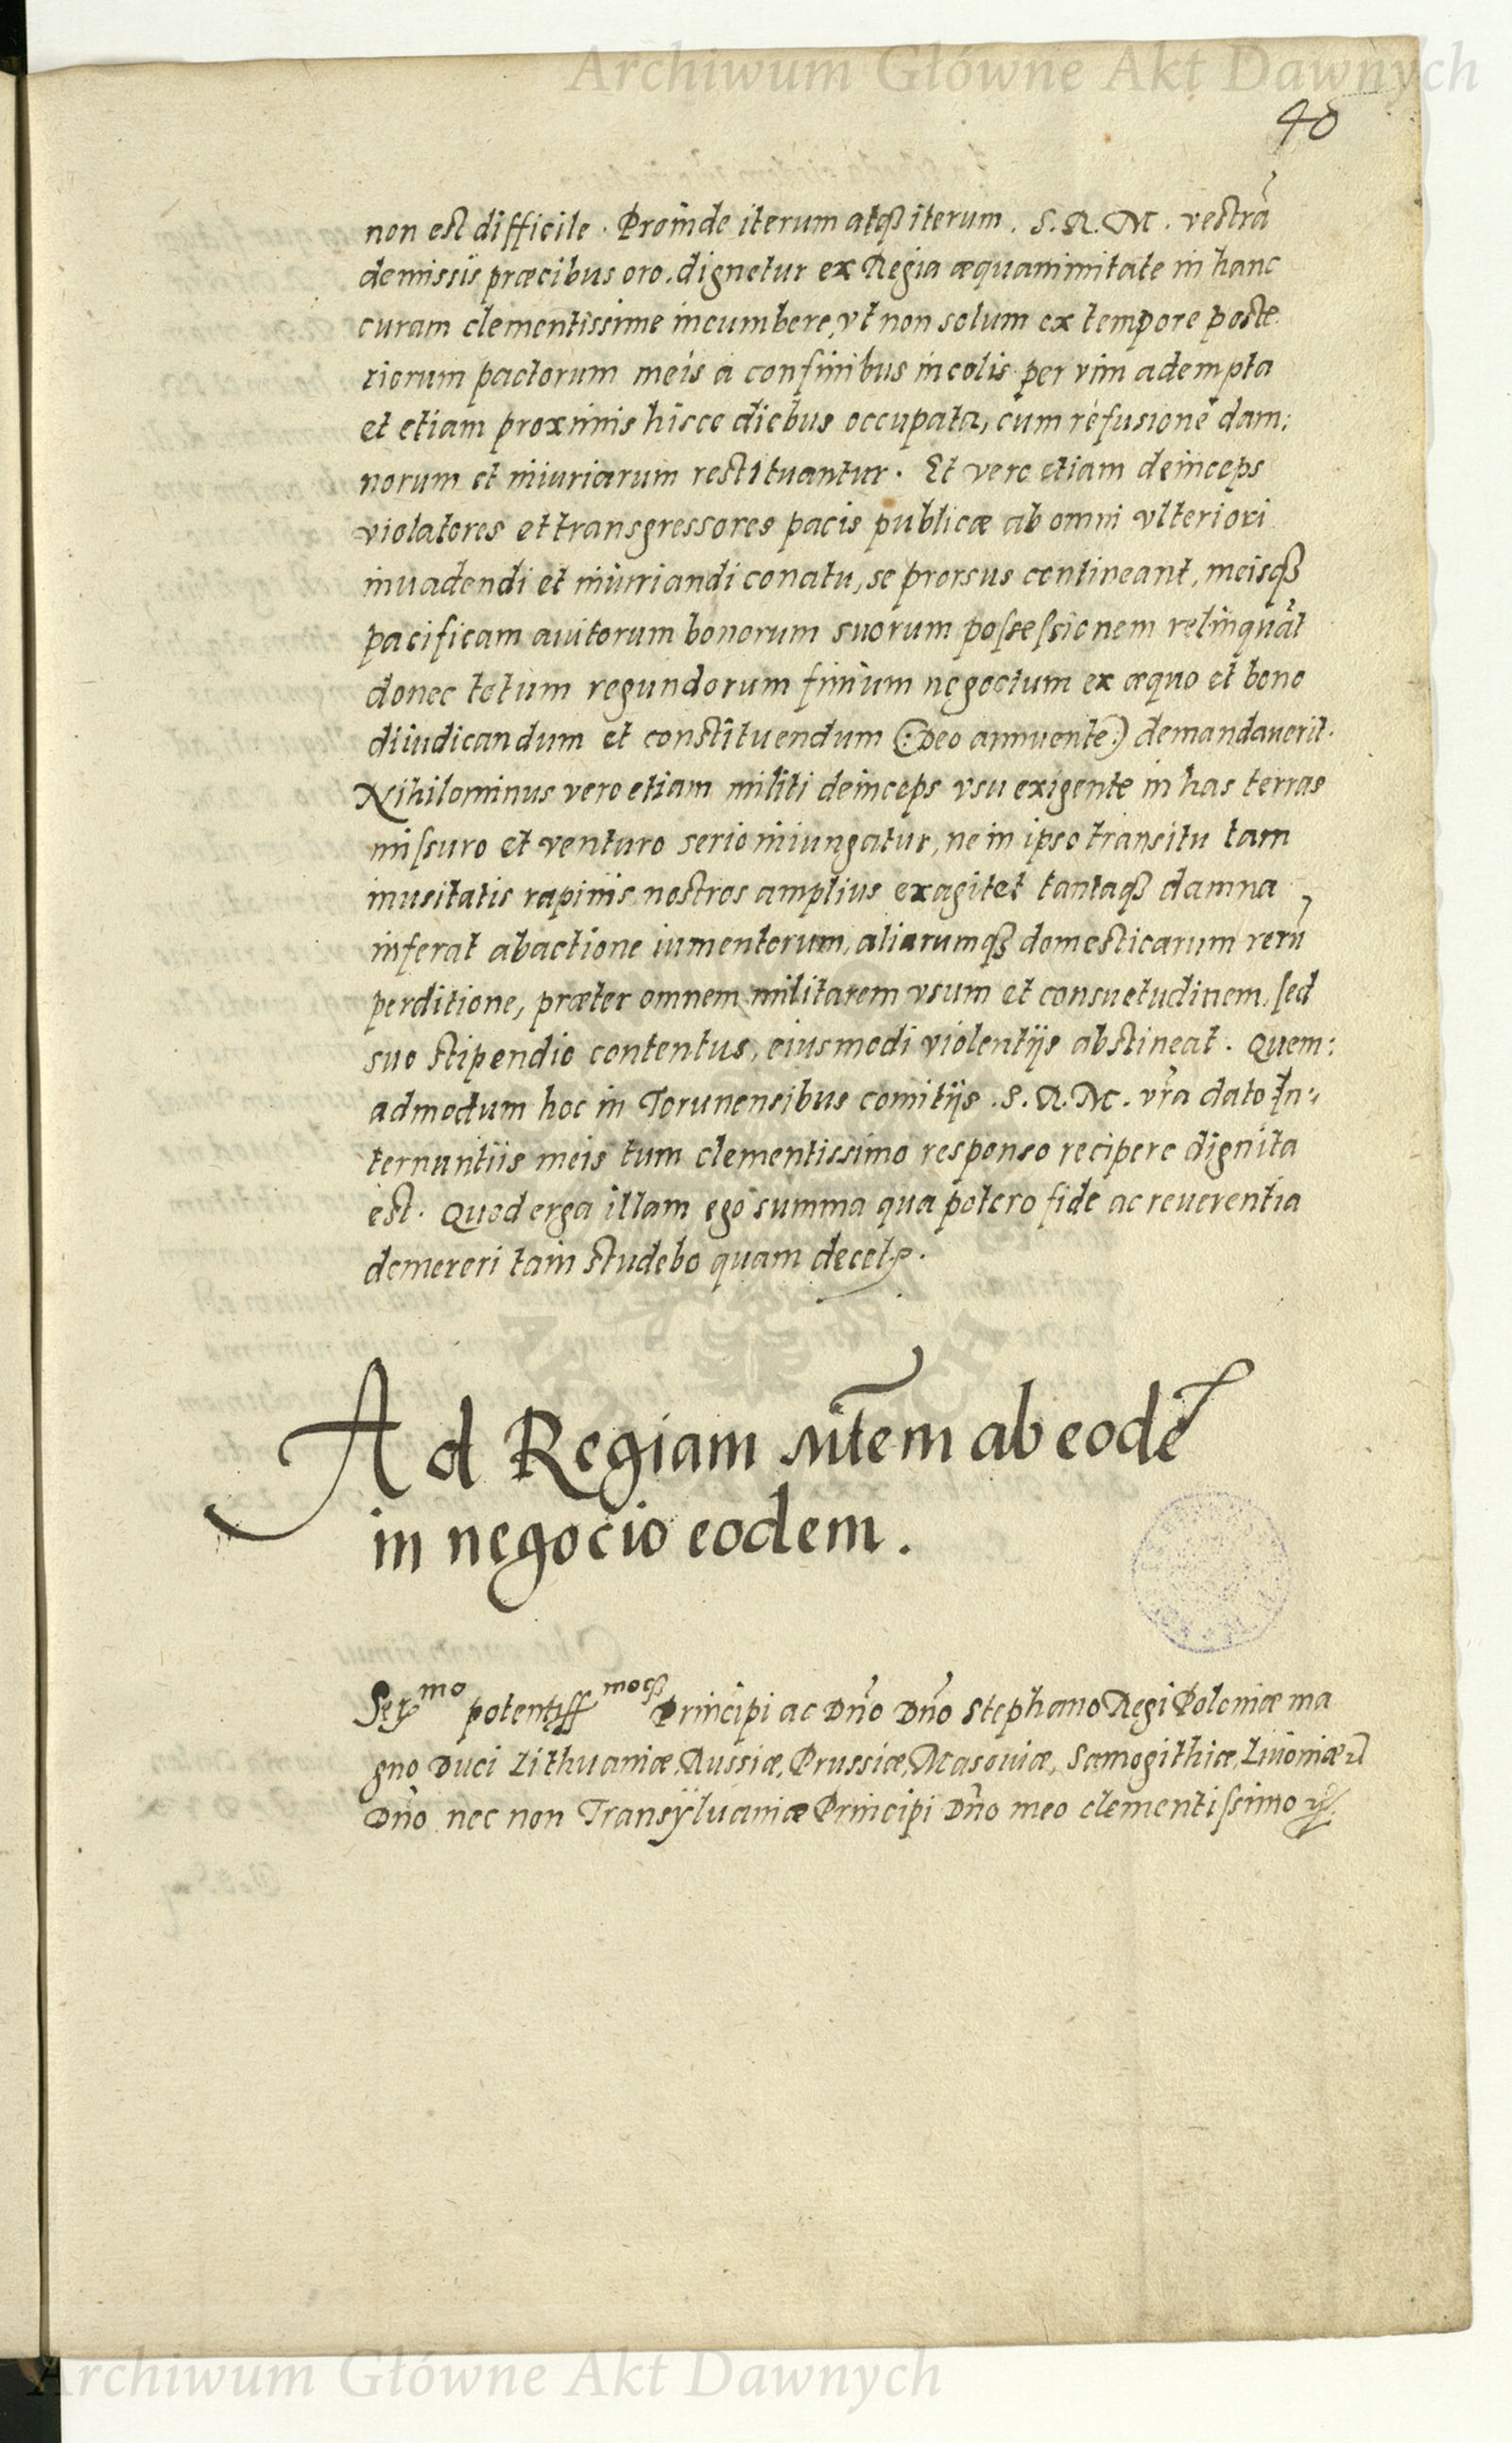 Archiwum Główne Akt Dawnych
40
non est difficile. Proinde iterum atqꝫ iterum. S. R. M. vestrã
demissis præcibus oro, dignetur ex Regia æquanimitate in hanc
curam clementissime incumbere, vt non solum ex tempore poste
riorum pactorum meis a confinibus incolis per vim adempta
et etiam proximis hisce diebus occupata, cum refusione dam:
norum et iniuriarum restituantur. Et vero etiam deinceps
violatores et transgressores pacis publicæ ab omni vlteriori
inuadendi et iniuriandi conatu, se prorsus contineant, meisqꝫ
pacificam auitorum bonorum suorum possessionem relinquãt
donec totum regundorum finium negocium ex æquo et bono
diiudicandum et constituendum (:Deo annuente:) demandauerit.
Nihilominus vero etiam militi deinceps vsu exigente in has terras
missuro et venturo serio iniungatur, ne in ipso transitu tam
inusitatis rapinis nostros amplius exagitet tantaqꝫ damna
inferat abactione iumentorum, aliarumqꝫ domesticarum rerũ
perditione, præter omnem militarem vsum et consuetudinem, sed
suo stipendio contentus, eiusmodi violentijs abstineat. Quem:
admodum hoc in Torunensibus comitijs. S. R. M. vr̃a dato In:
ternuntiis meis tum clementissimo responso recipere dignita
est. Quod erga illam ego summa qua potero fide ac reuerentia
demereri tam studebo quam decet.
Ad Regiam Mtem ab eodẽ
in negocio eodem.
Ser^mo potentiss^moqꝫ Principi ac Dño Dño Stephano Regi Poloniæ ma
gno Duci Lithuaniæ, Russiæ, Prussiæ, Masouiæ, Samogithiæ, Liuoniæ
Dño nec non Transyluaniæ Principi Dño meo clementissimo
Archiwum Główne Akt Dawnych